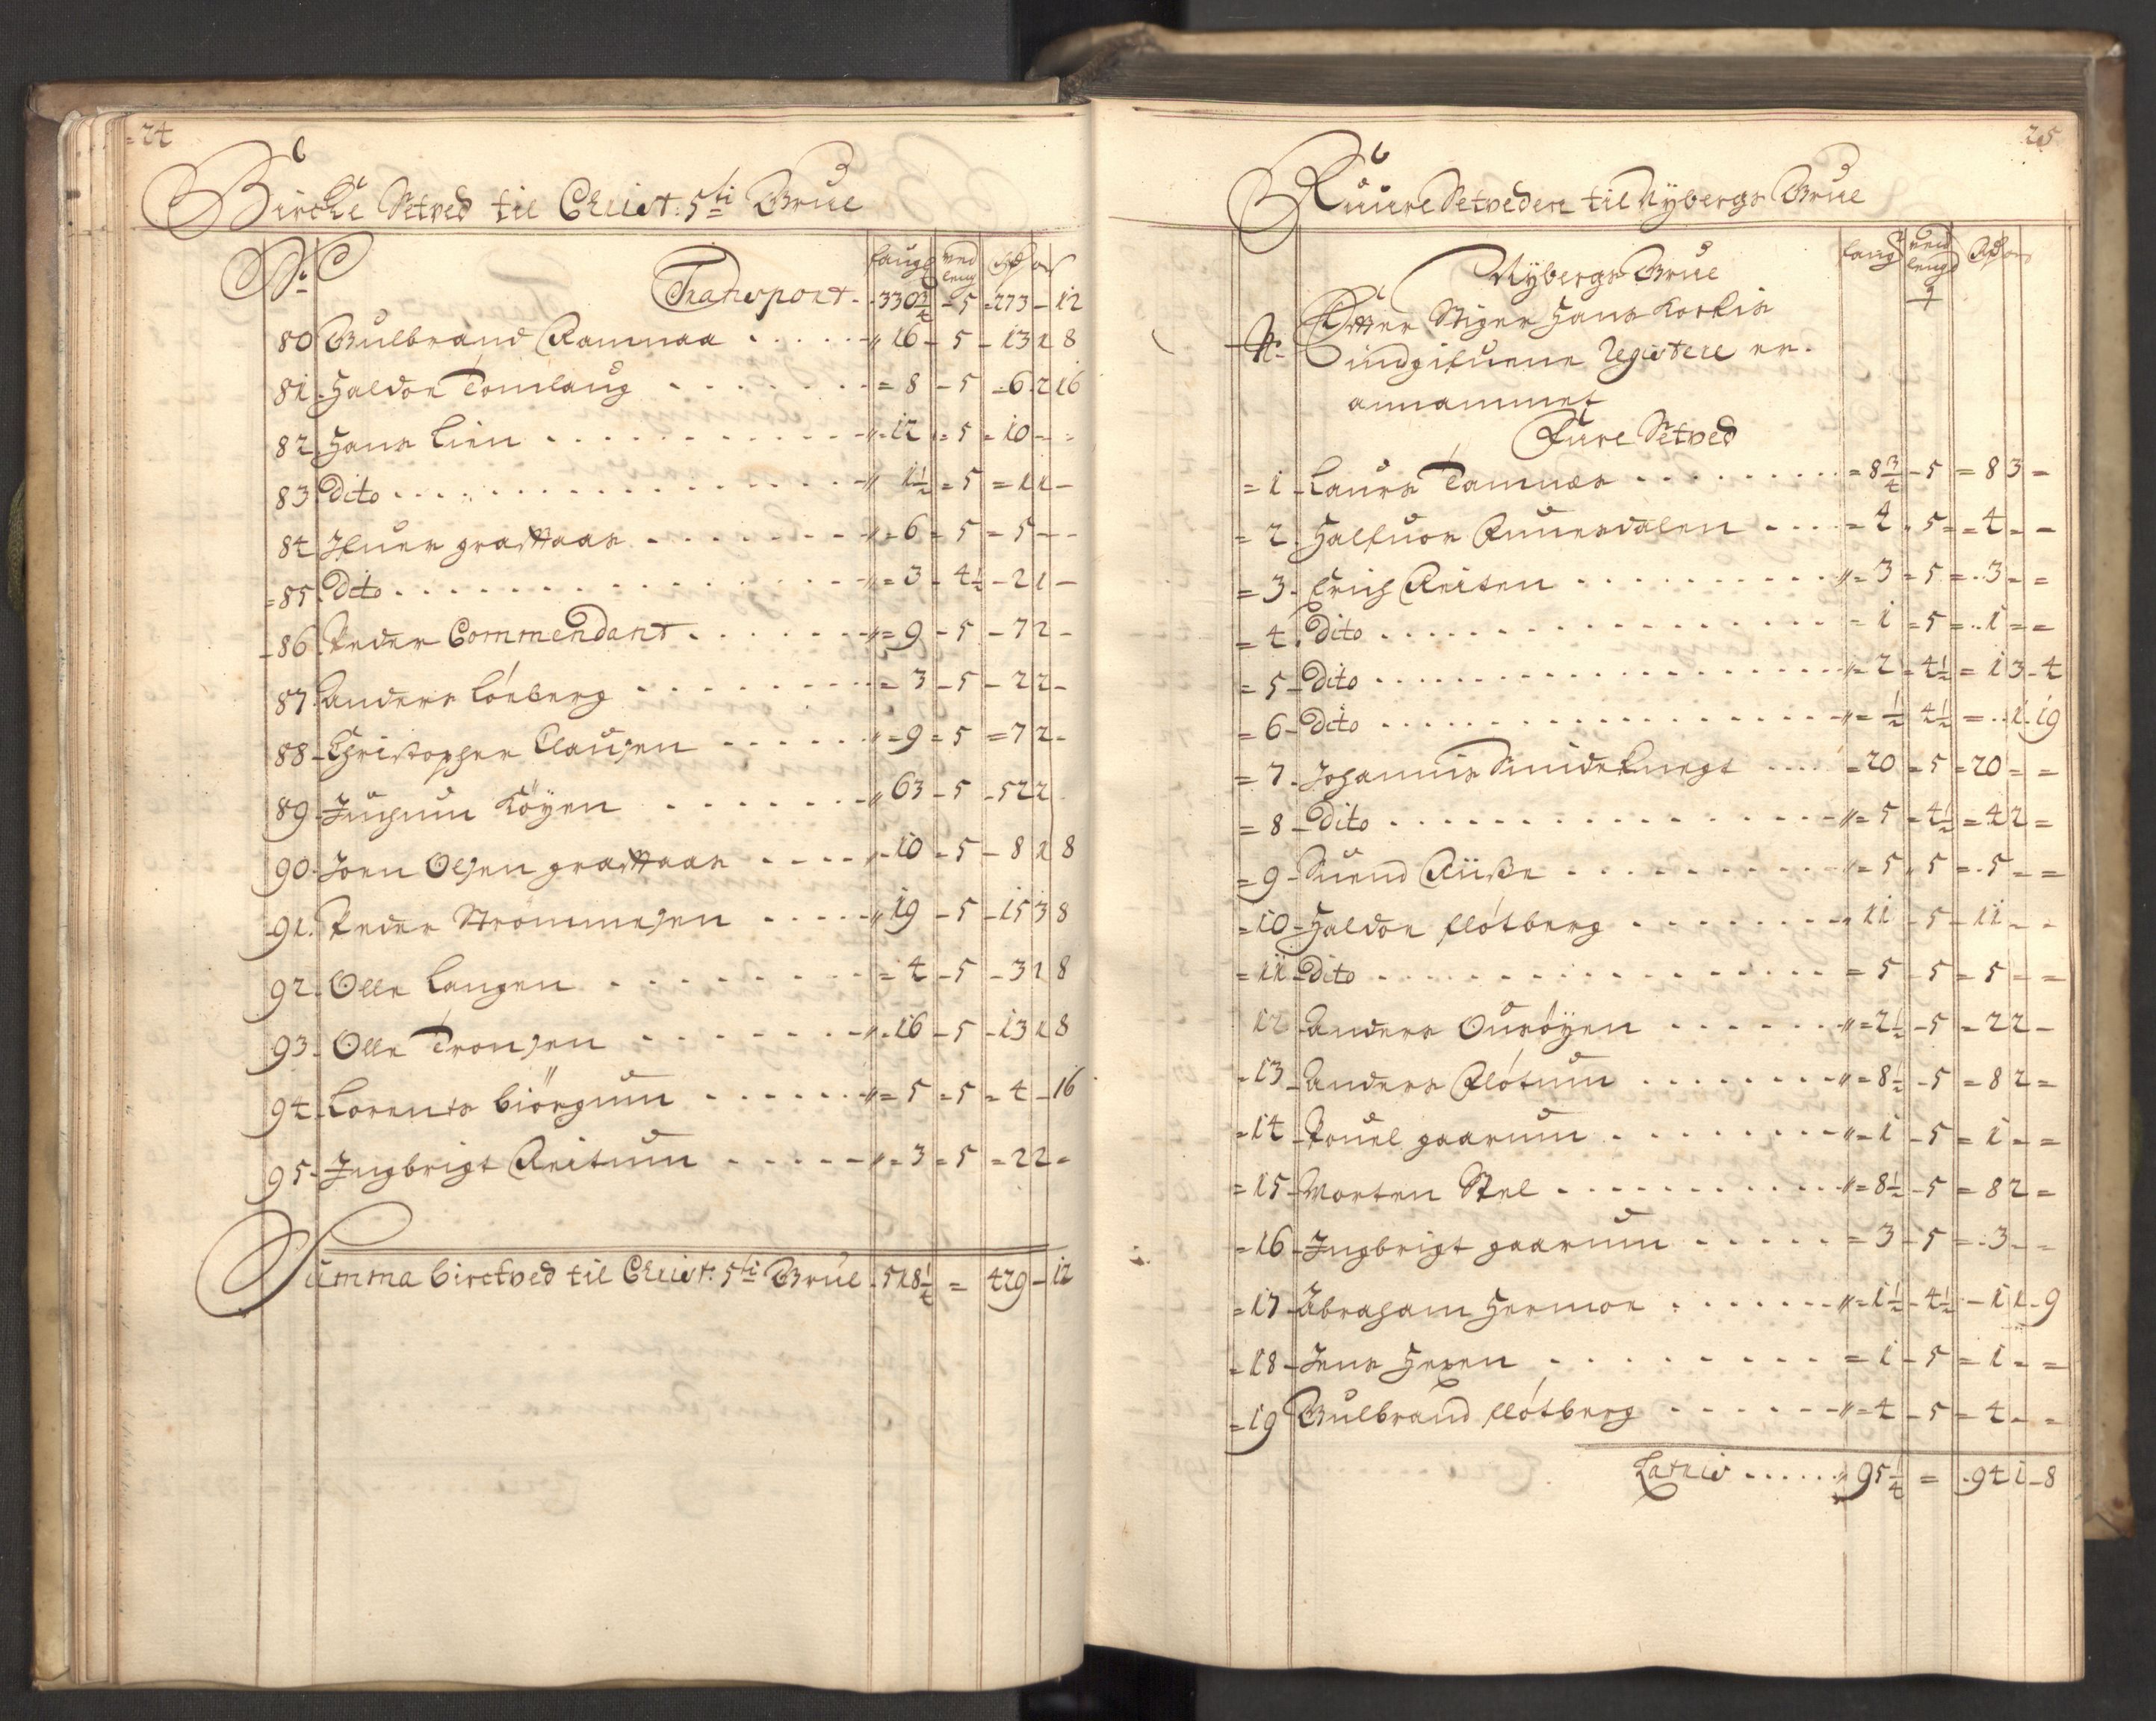 24
Bircke Setved til Christ: 5ti Grue
No
faugl ved leng Rd ort
Transport - 330 3/4 - 5 - 273 - 12
80 Gulbrand Ramnaa . . . . . 16 - 5 - 13 1 8
81 Haldor Tomlaug . . . . . = 8 - 5 - 6 2 16
82 Hans Lien . . . . . 12 = 5 = 10 - -
83 Dito . . . . . 1 1/2 = 5 = 1 1 -
84 Ifuer graffaas . . . . . = 6 = 5 = 5 - -
=85 Dito . . . . . = 3 - 4 1/2 - 2 1 -
-86 Peder Commendant . . . . . = 9 - 5 - 7 2 -
87 Anders Lönberg . . . . . = 3 - 5 - 2 2 -
88 - Christopher Clausen . . . . . = 9 = 5 = 7 2 -
89 - Juhnun Köyen . . . . . 63 - 5 - 52 2
90 - Joen Olsen graffaas . . . . . 10 = 5 - 8 1 8
91. Peder Strömmesen . . . . . 19 - 5 - 15 3 8
92. Olle Langen . . . . . = 4 - 5 - 3 1 8
93 - Olle Tronsen . . . . . 16 - 5 - 13 1 8
94 - Lorents Biörgum . . . . . = 5 = 5 = 4 - 16
95 - Ingbrigt Reitum . . . . . = 3 = 5 = 2 2 -
Summa Birckved til Christ: 5ti Grue - 518 1/4 = 429 - 12
25
Fuure Setveden til Nybergs Grue
faugl ved lengd Rd ort
Nybergs Grue
No Efter Stiger Hans Korkis
indgifuene Registere er
annammet
Fure Setved
= 1 - Laurs Tamnes . . . . . = 8 3/4 - 5 = 8 3 =
= 2. Halfuor Fuuersdalen . . . . = 4 - 5 = 4 - -
= 3 - Erich Reiten . . . . . = 3 = 5 = 3 - =
= 4. Dito . . . . . = 1 = 5 = 1 = =
= 5 - Dito . . . . . = 2 = 4 1/2 = 1 3 - 4
= 6 - Dito . . . . . = 1/2 4 1/2 = . . 1. 19
= 7 - Johannis Smideknegt . . . . = 20 = 5 = 20 = =
= 8 - Dito . . . . . = 5 = 4 1/2 = 4 2 =
= 9 - Suend Riise . . . . . = 5 - 5 = 5 - =
= 10 - Haldor flötberg . . . . . 11 - 5 - 11 - -
= 11 - Dito . . . . . = 5 - 5 = 5 - =
12 - Anders Ousöyen . . . . . = 2 1/2 - 5 = 2 2 -
- 13 - Anders Flötum . . . . . = 8 1/2 - 5 = 8 2 =
= 14 - Pouel gaarum . . . . . = 1 - 5 = 1 - =
= 15 - Morten Stel . . . . . = 8 1/2 - 5 = 8 2 =
= 16 - Ingbrigt gaarum . . . . . = 3 - 5 = 3 - -
= 17 - Abraham Hermor . . . . . = 1 1/2 - 4 1/2 - 1 1 - 9
= 18 - Jens Hexen . . . . . = 1 - 5 = 1 - =
= 19 Gulbrand flötberg . . . . . = 4 - 5 = 4 - =
Latris . . . . . 95 1/4 = 94 1 - 8